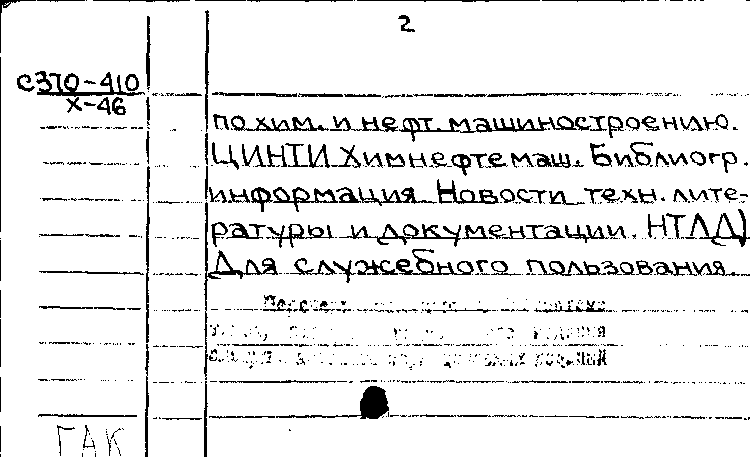 2
С370-410
Х-46
по хим. и нефт. машиностроению.
ЦИНТИ Химнефтемаш. Библиогр.
информация Новости техн. лите-
ратуры и документации. НТЛД)
Для служебного пользования.
ГАК